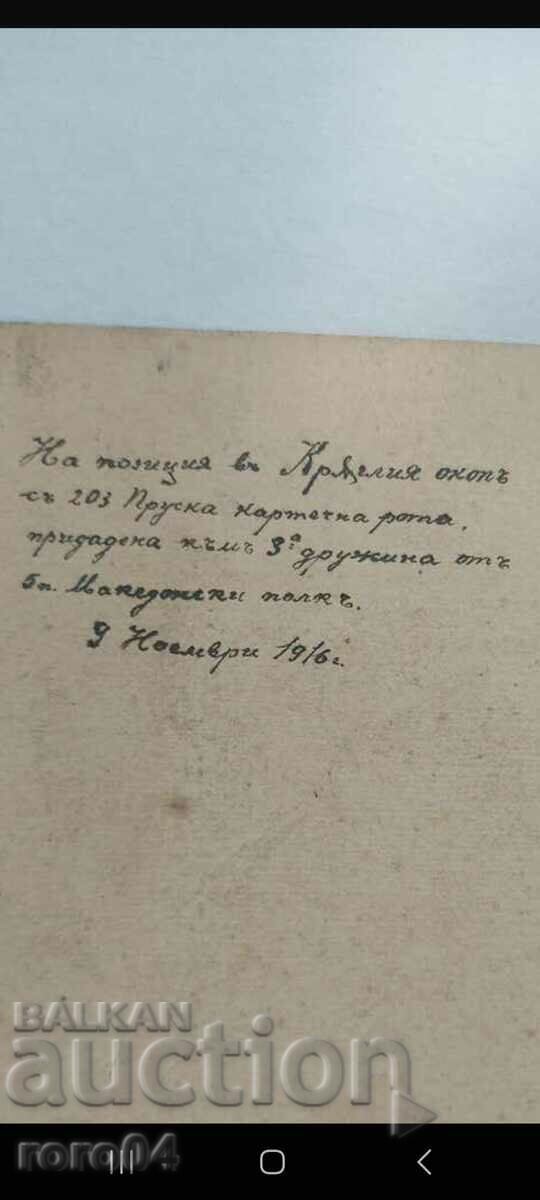 На позиция въ Крѫглия окопъ
съ 203 Пруска картечна рота,
придадена къмъ 3ª дружина отъ
5п. Македонски полкъ.
9 Ноември 1916 г.
BALKAN
auction
roro04